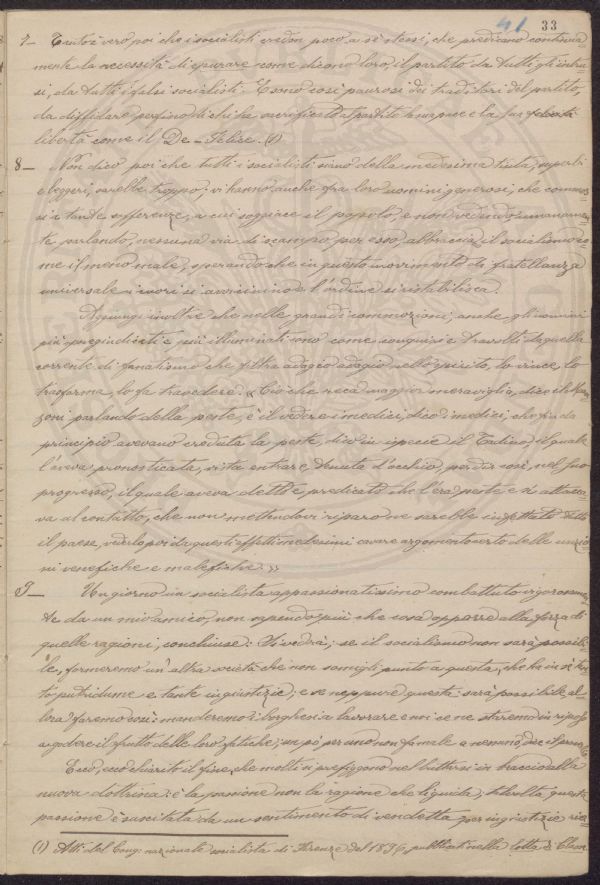 41 33
7_ Tanto è vero poi che i socialisti credon poco a sè stessi, che predicano continua=
mente la necessità di epurare come dicono loro, il partito da tutti gl'intru=
si, da tutti i falsi socialisti. E sono così paurosi dei traditori del partito,
da diffidare perfino di chi ha sacrificato al partito la sua pace e la sua
libertà come il De-Felice. (1)
8_ Non dico poi che tutti i socialisti siano della medesima tinta, superbi
e leggeri, sarebbe troppo; vi hanno anche fra loro uomini generosi, che commos=
si a tante sofferenze, a cui soggiace il popolo, e non vedendo umanamen=
te parlando, nessuna via di scampo per esso, abbraccia il socialismo co=
me il meno male, sperando che in questo movimento di fratellanza
universale i cuori si avvicinino e l'ordine si ristabilisca.
Aggiungi inoltre che nelle grandi commozioni, anche gli uomini
più spregiudicati e più illuminati sono come soggiogati e travolti da quella
corrente di fanatismo che filtra adagio adagio nello spirito, lo vince, lo
trasforma, lo fa travedere. « Ciò che reca maggior meraviglia, dice il Man=
zoni parlando della peste, è il vedere i medici, dico i medici, che fin da
principio avevano creduta la peste, dico in ispecie il Tadino, il quale
l'aveva pronosticata, vista entrare, tenuta d'occhio, per dir così, nel suo
progresso, il quale aveva detto e predicato che l'era peste e s'attacca=
va al contatto, che non mettendovi riparo ne sarebbe infettato tutto
il paese, vederlo poi da questi effetti medesimi cavare argomento certo delle unzio=
ni venefiche e malefiche »
9_ Un giorno un socialista appassionatissimo combattuto vigorosamen=
te da un mio amico, non sapendo più che cosa opporre alla forza di
quelle ragioni, conchiuse: Si vedrà; se il socialismo non sarà possibi=
le, formeremo un'altra società che non somigli punto a questa, che ha in sè tan=
to putridume e tante ingiustizie; e se neppure questa sarà possibile, al=
lora faremo così: manderemo i borghesi a lavorare e noi ce ne staremo in riposo
a godere il frutto delle loro fatiche; un po' per uno non fa male a nessuno, dice il proverbio
Ecco, ecco chiarito il fine, che molti si prefiggono nel buttarsi in braccio alla
nuova dottrina: è la passione non la ragione che li guida; talvolta questa
passione è suscitata da un sentimento di vendetta per ingiustizie
(1) Atti del Cong. nazionale socialista di Firenze del 1896, pubblicati nella Lotta di Classe